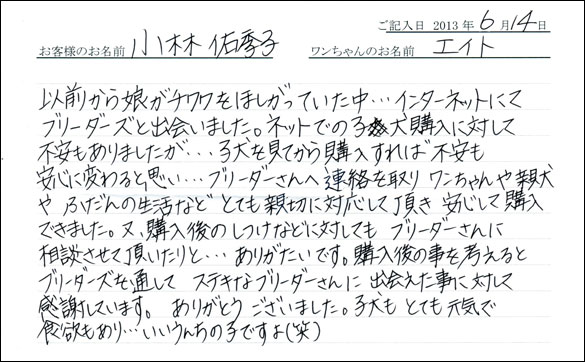 ご記入日 2013年6月14日
お客様のお名前 小林 佑季子 ワンちゃんのお名前 エイト
以前から娘がチワワをほしがっていた中…インターネットにて
ブリーダーズと出会いました。ネットでの子犬購入に対して
不安もありましたが…子犬を見てから購入すれば不安も
安心に変わると思い…ブリーダーさんへ連絡を取りワンちゃんや親犬
やふだんの生活などとても親切に対応して頂き安心して購入
できました。又、購入後のしつけなどに対してもブリーダーさんに
相談させて頂いたりと…ありがたいです。購入後の事を考えると
ブリーダーズを通してステキなブリーダーさんに出会えた事に対して
感謝しています。ありがとうございました。子犬もとても元気で
食欲もあり…いいうんちの子ですよ(笑)